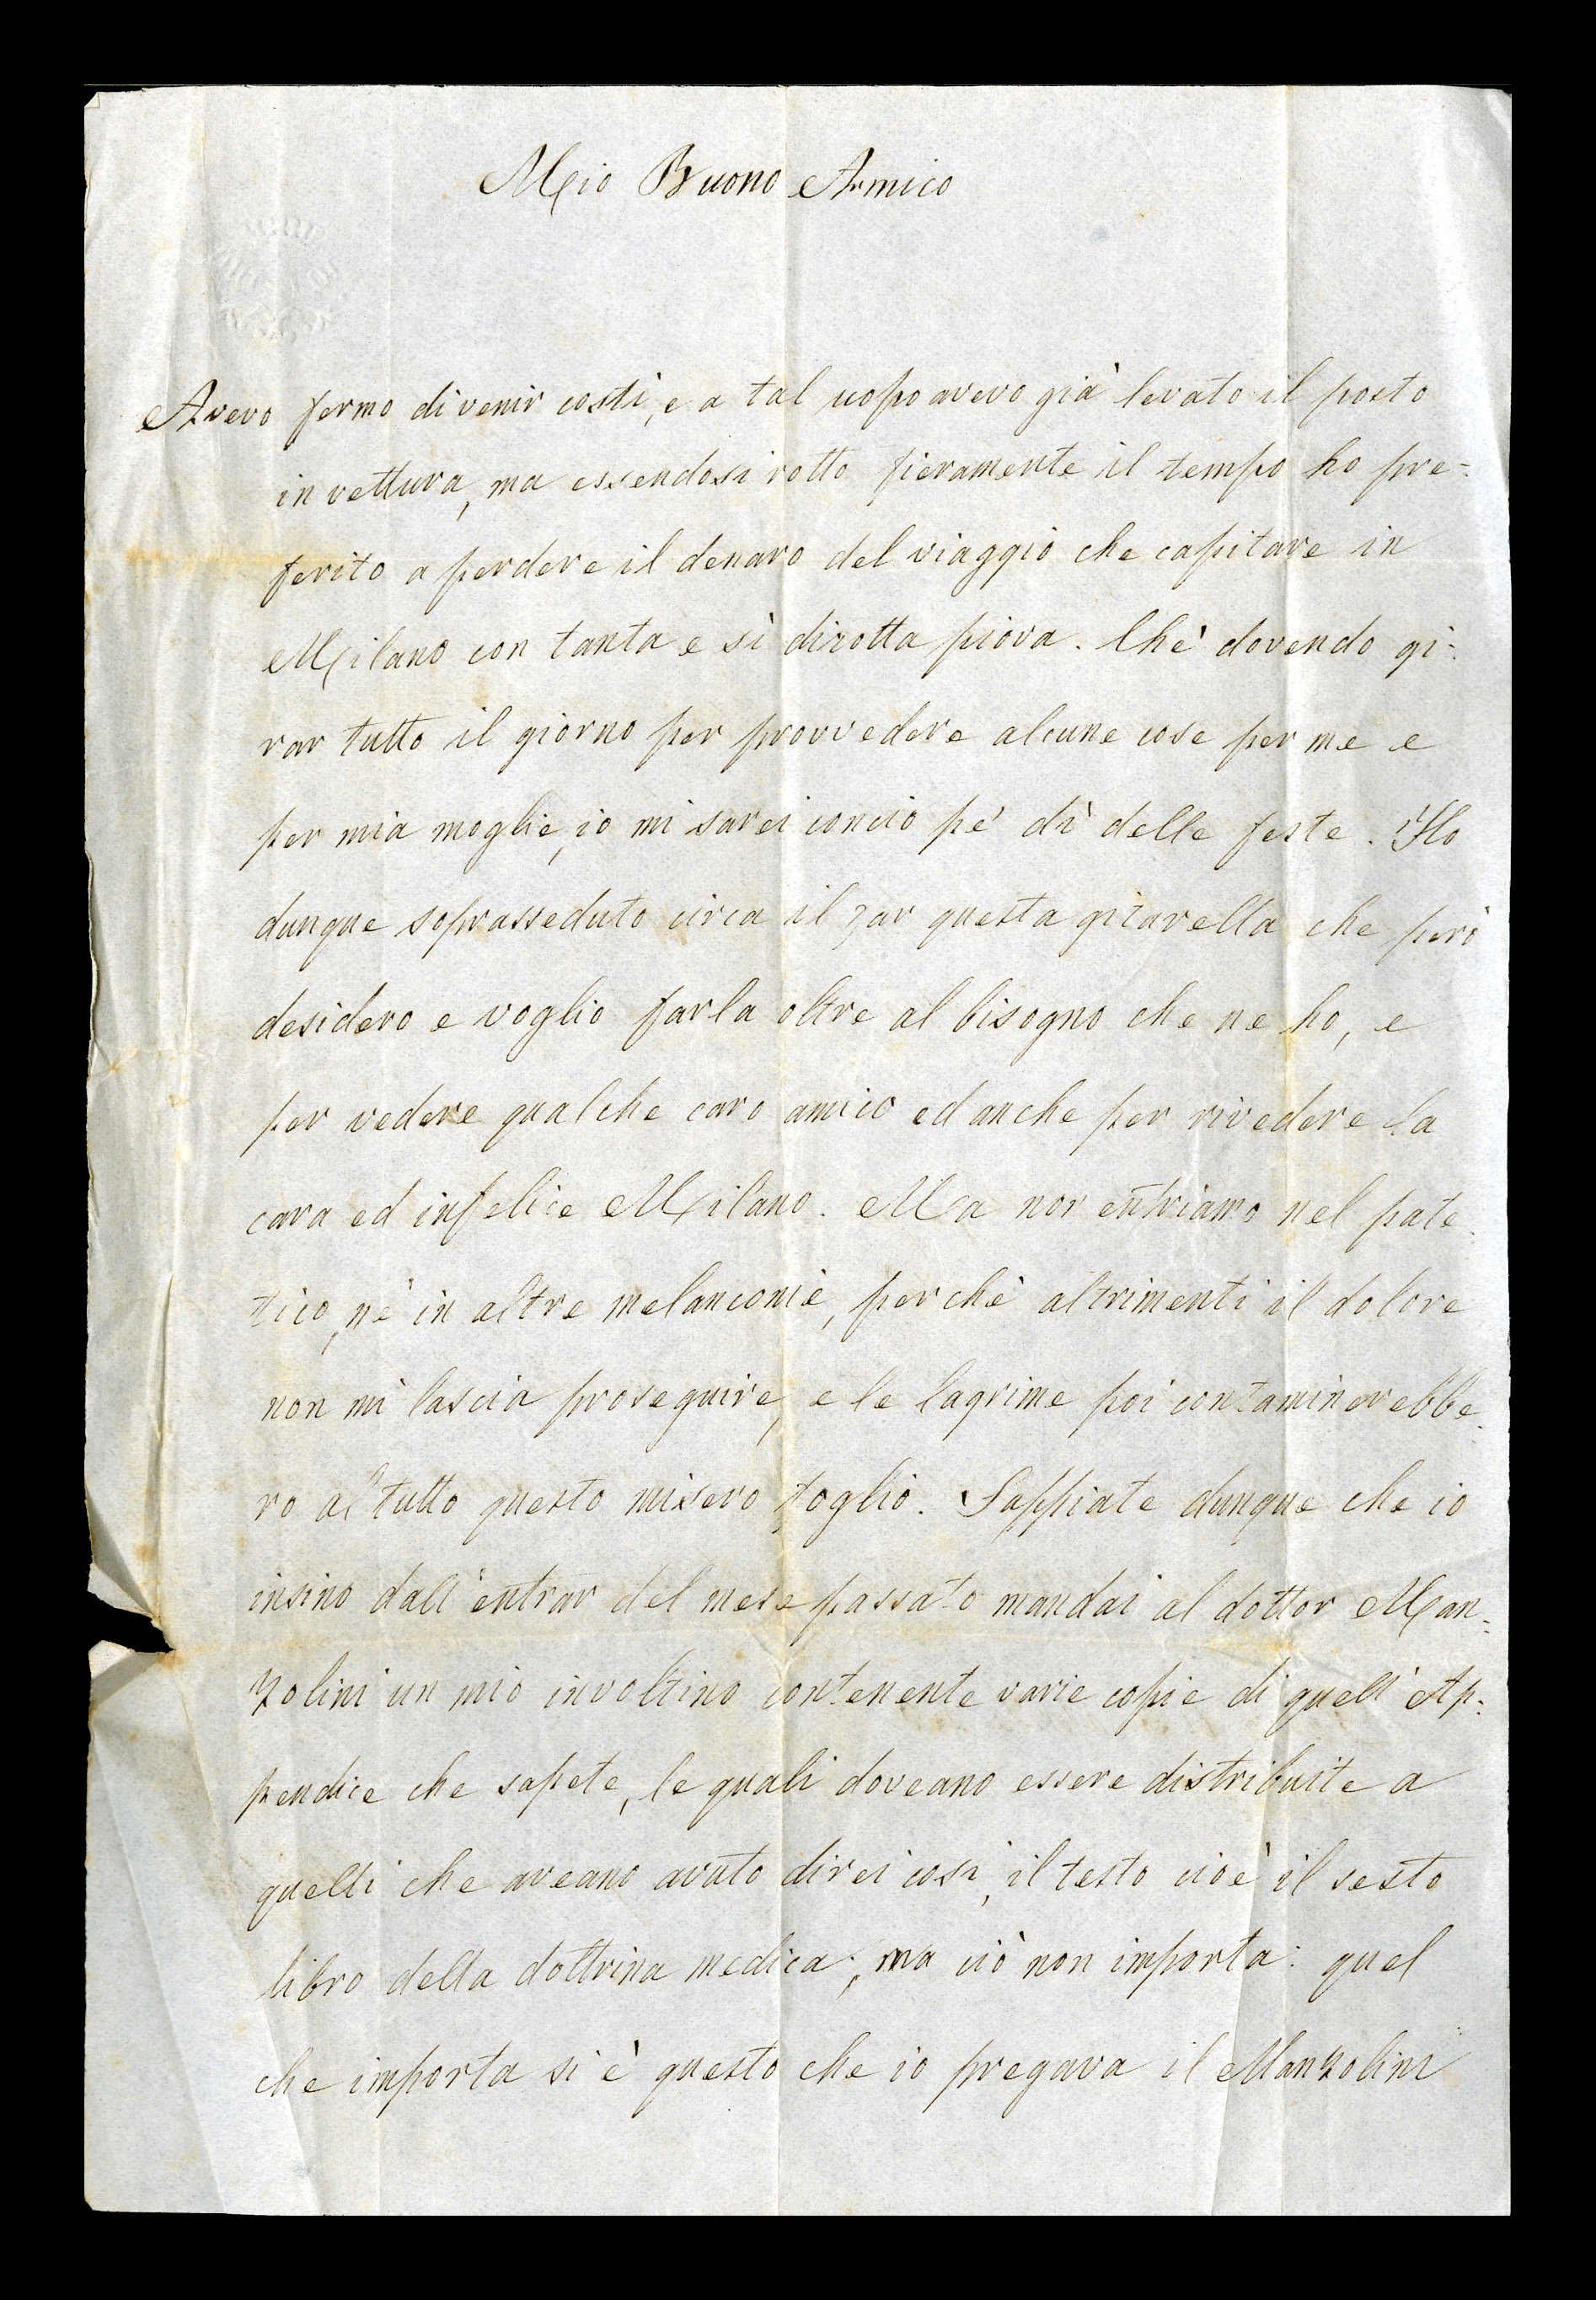 Mio Buono Amico
Avevo fermo di venir costì, e a tal uopo avevo già levato il posto
in vettura, ma essendosi rotto fieramente il tempo ho pre=
ferito a perdere il denaro del viaggio che capitare in
Milano con tanta e sì dirotta piova. Chè dovendo gi:
rar tutto il giorno per provvedere alcune cose per me e
per mia moglie, io mi sarei concio pe' dì delle feste. Ho
dunque soprasseduto circa il far questa gitarella che però
desidero e voglio farla oltre al bisogno che ne ho, e
per vedere qualche caro amico ed anche per rivedere la
cara ed infelice Milano. Ma non entriamo nel pate.
tico, nè in altre melanconie, perchè altrimenti il dolore
non mi lascia proseguire, e le lagrime poi contaminerebbe.
ro al tutto questo misero foglio. Sappiate dunque che io
insino dall'entrar del mese passato mandai al dottor Man:
zolini un mio involtino contenente varie copie di quell'Ap:
pendice che sapete, le quali doveano essere distribuite a
quelli che aveano avuto direi così, il testo cioè il sesto
libro della dottrina medica; ma ciò non importa: quel
che importa si è questo che io pregava il Manzolini